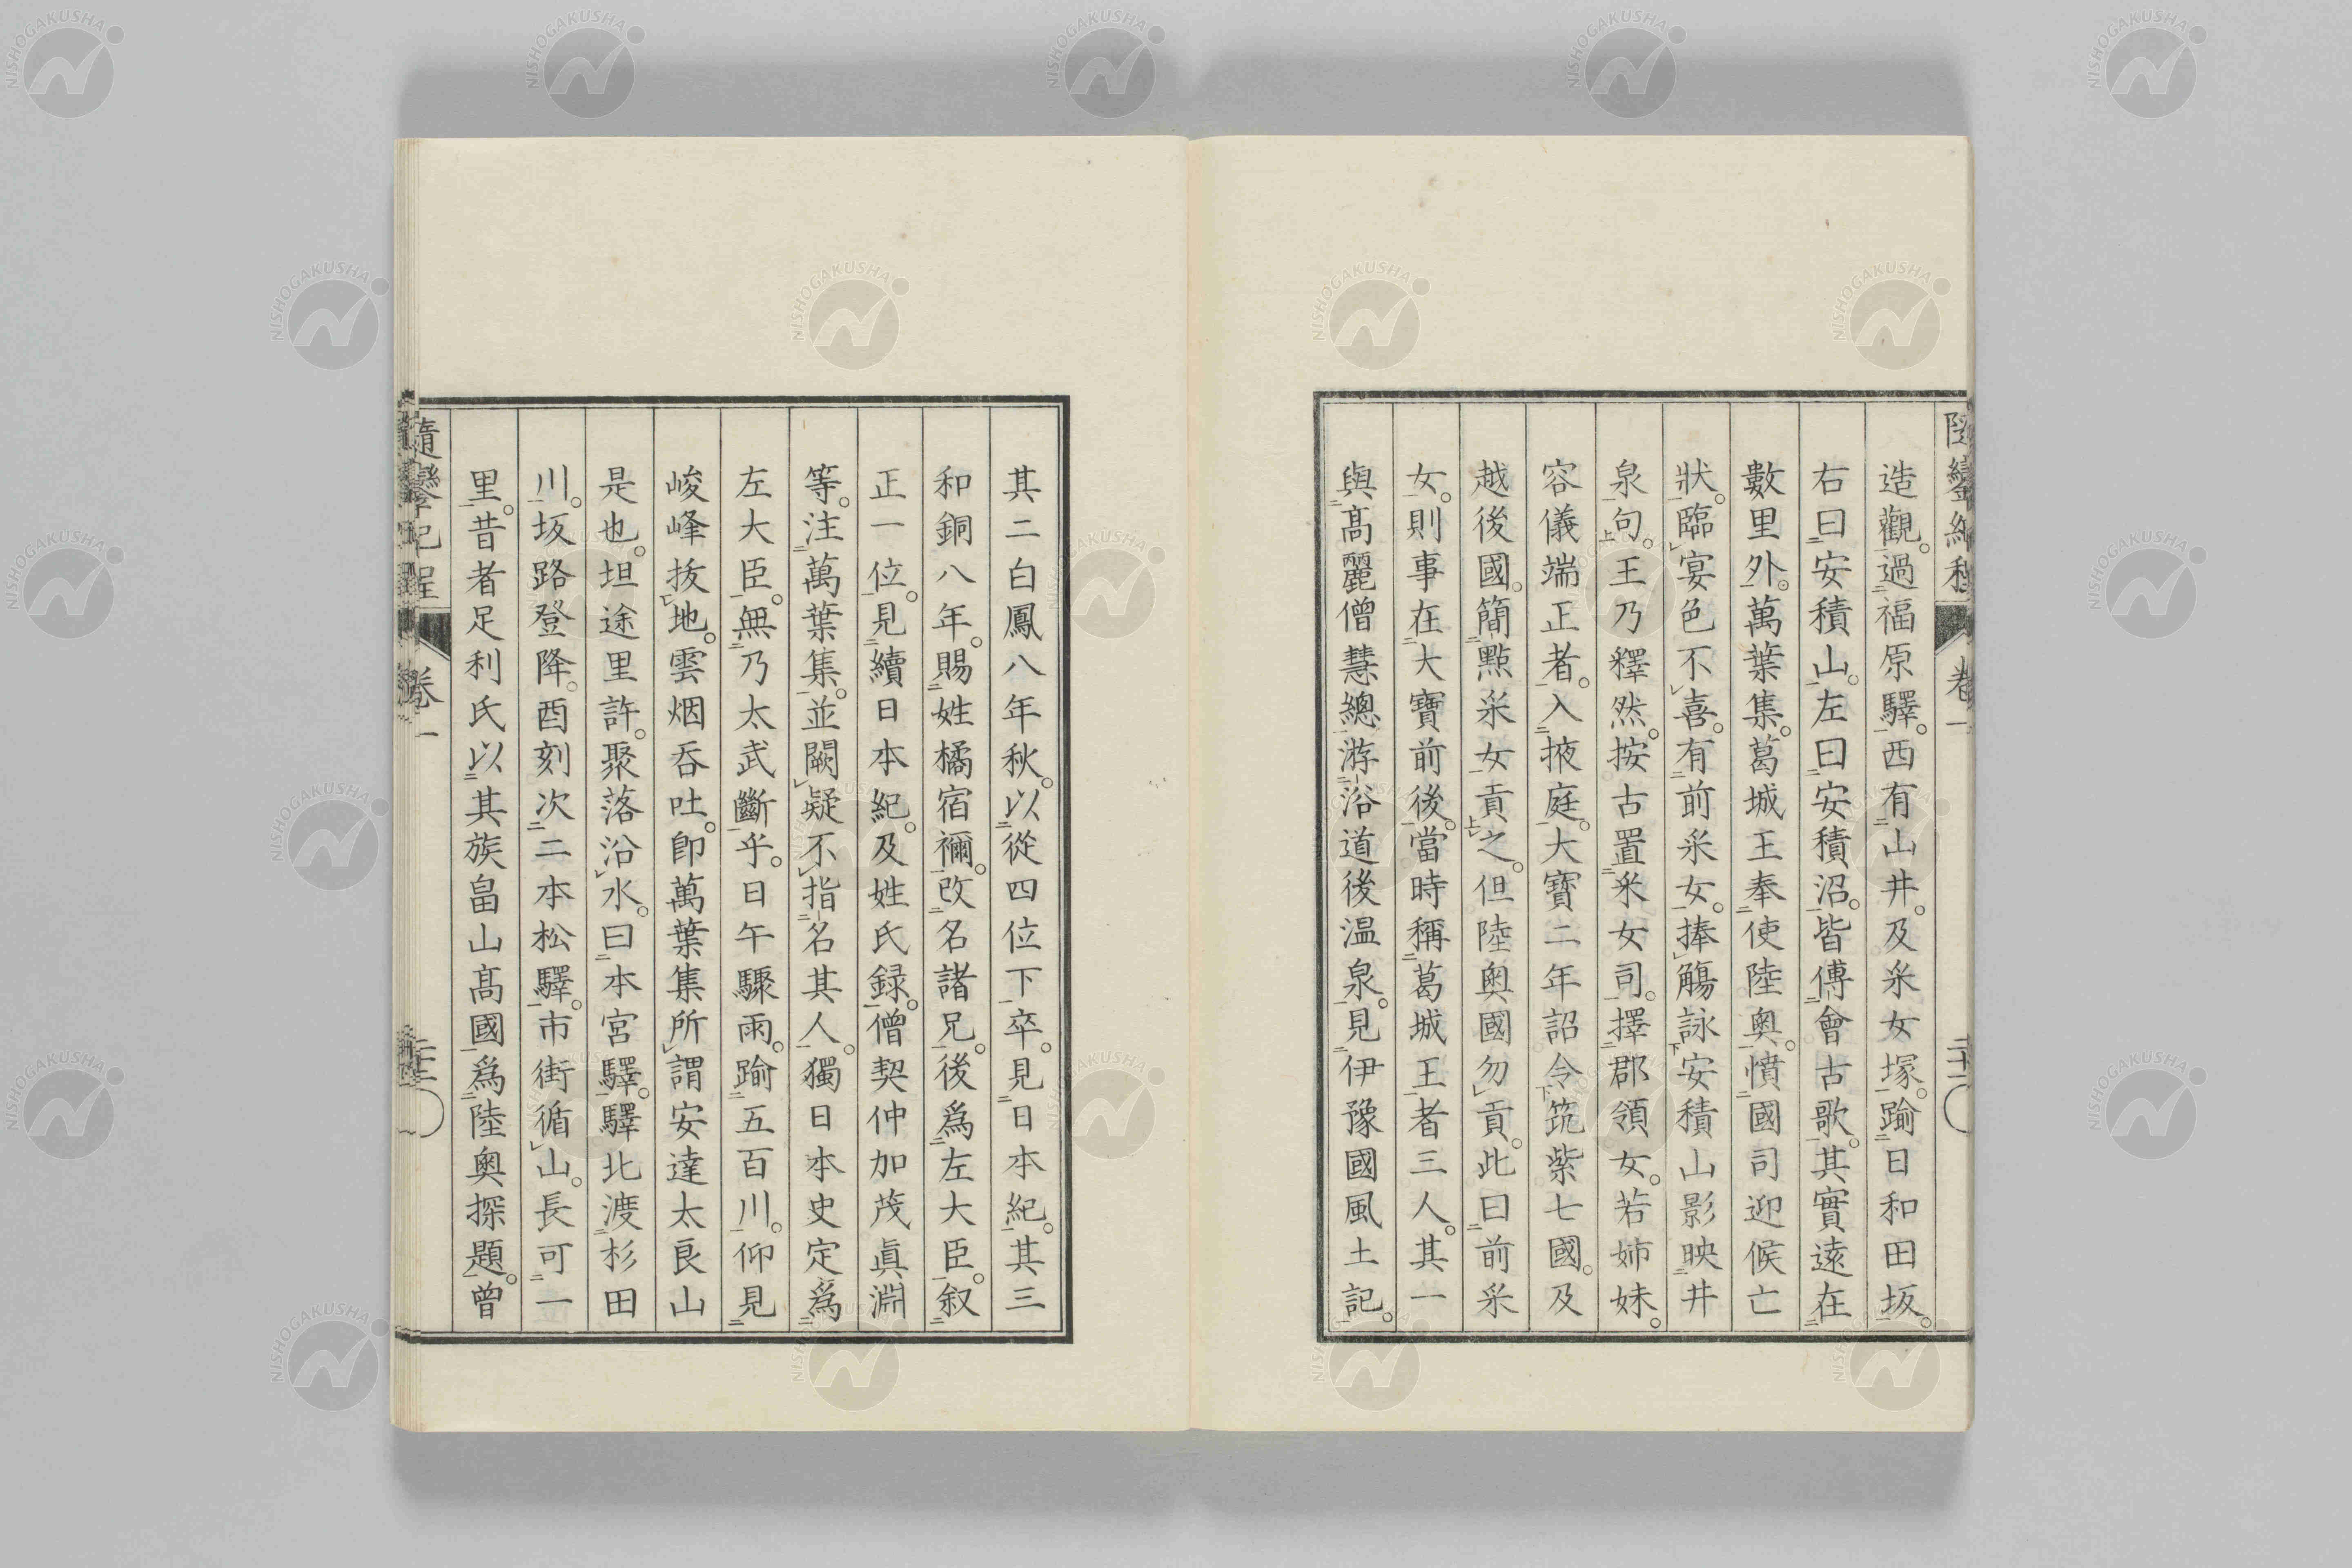 造觀。過福原驛。西有山井。及采女塚。踰日和田坂。
右曰安積山。左曰安積沼。皆傅會古歌。其實遠在
數里外。萬葉集。葛城王奉使陸奧。憤國司迎候亡
狀。臨宴色不喜。有前采女。捧觴詠安積山影映井
泉句。王乃釋然。按古置采女司。擇郡領女。若姉妹。
容儀端正者。入掖庭。大寶二年詔令筑紫七國。及
越後國。簡點采女貢之。但陸奧國勿貢。此曰前采
女。則事在大寶前後。當時稱葛城王者三人。其一
與髙麗僧慧總游浴道後温泉。見伊豫國風土記。
其二白鳳八年秋。以從四位下卒。見日本紀。其三
和銅八年。賜姓橘宿禰。改名諸兄。後爲左大臣。叙
正一位。見續日本紀。及姓氏録。僧契仲加茂眞淵
等。注萬葉集。並闕疑不指名其人。獨日本史定爲
左大臣。無乃太武斷乎。日午驟雨。踰五百川。仰見
峻峰拔地。雲烟呑吐。卽萬葉集所謂安達太良山
是也。坦途里許。聚落沿水。曰本宮驛。驛北渡杉田
川。坂路登降。酉刻次二本松驛。市街循山。長可一
里。昔者足利氏以其族畠山髙國爲陸奧探題。曾
隨鑾紀程
卷一
NISHOGAKUSHA